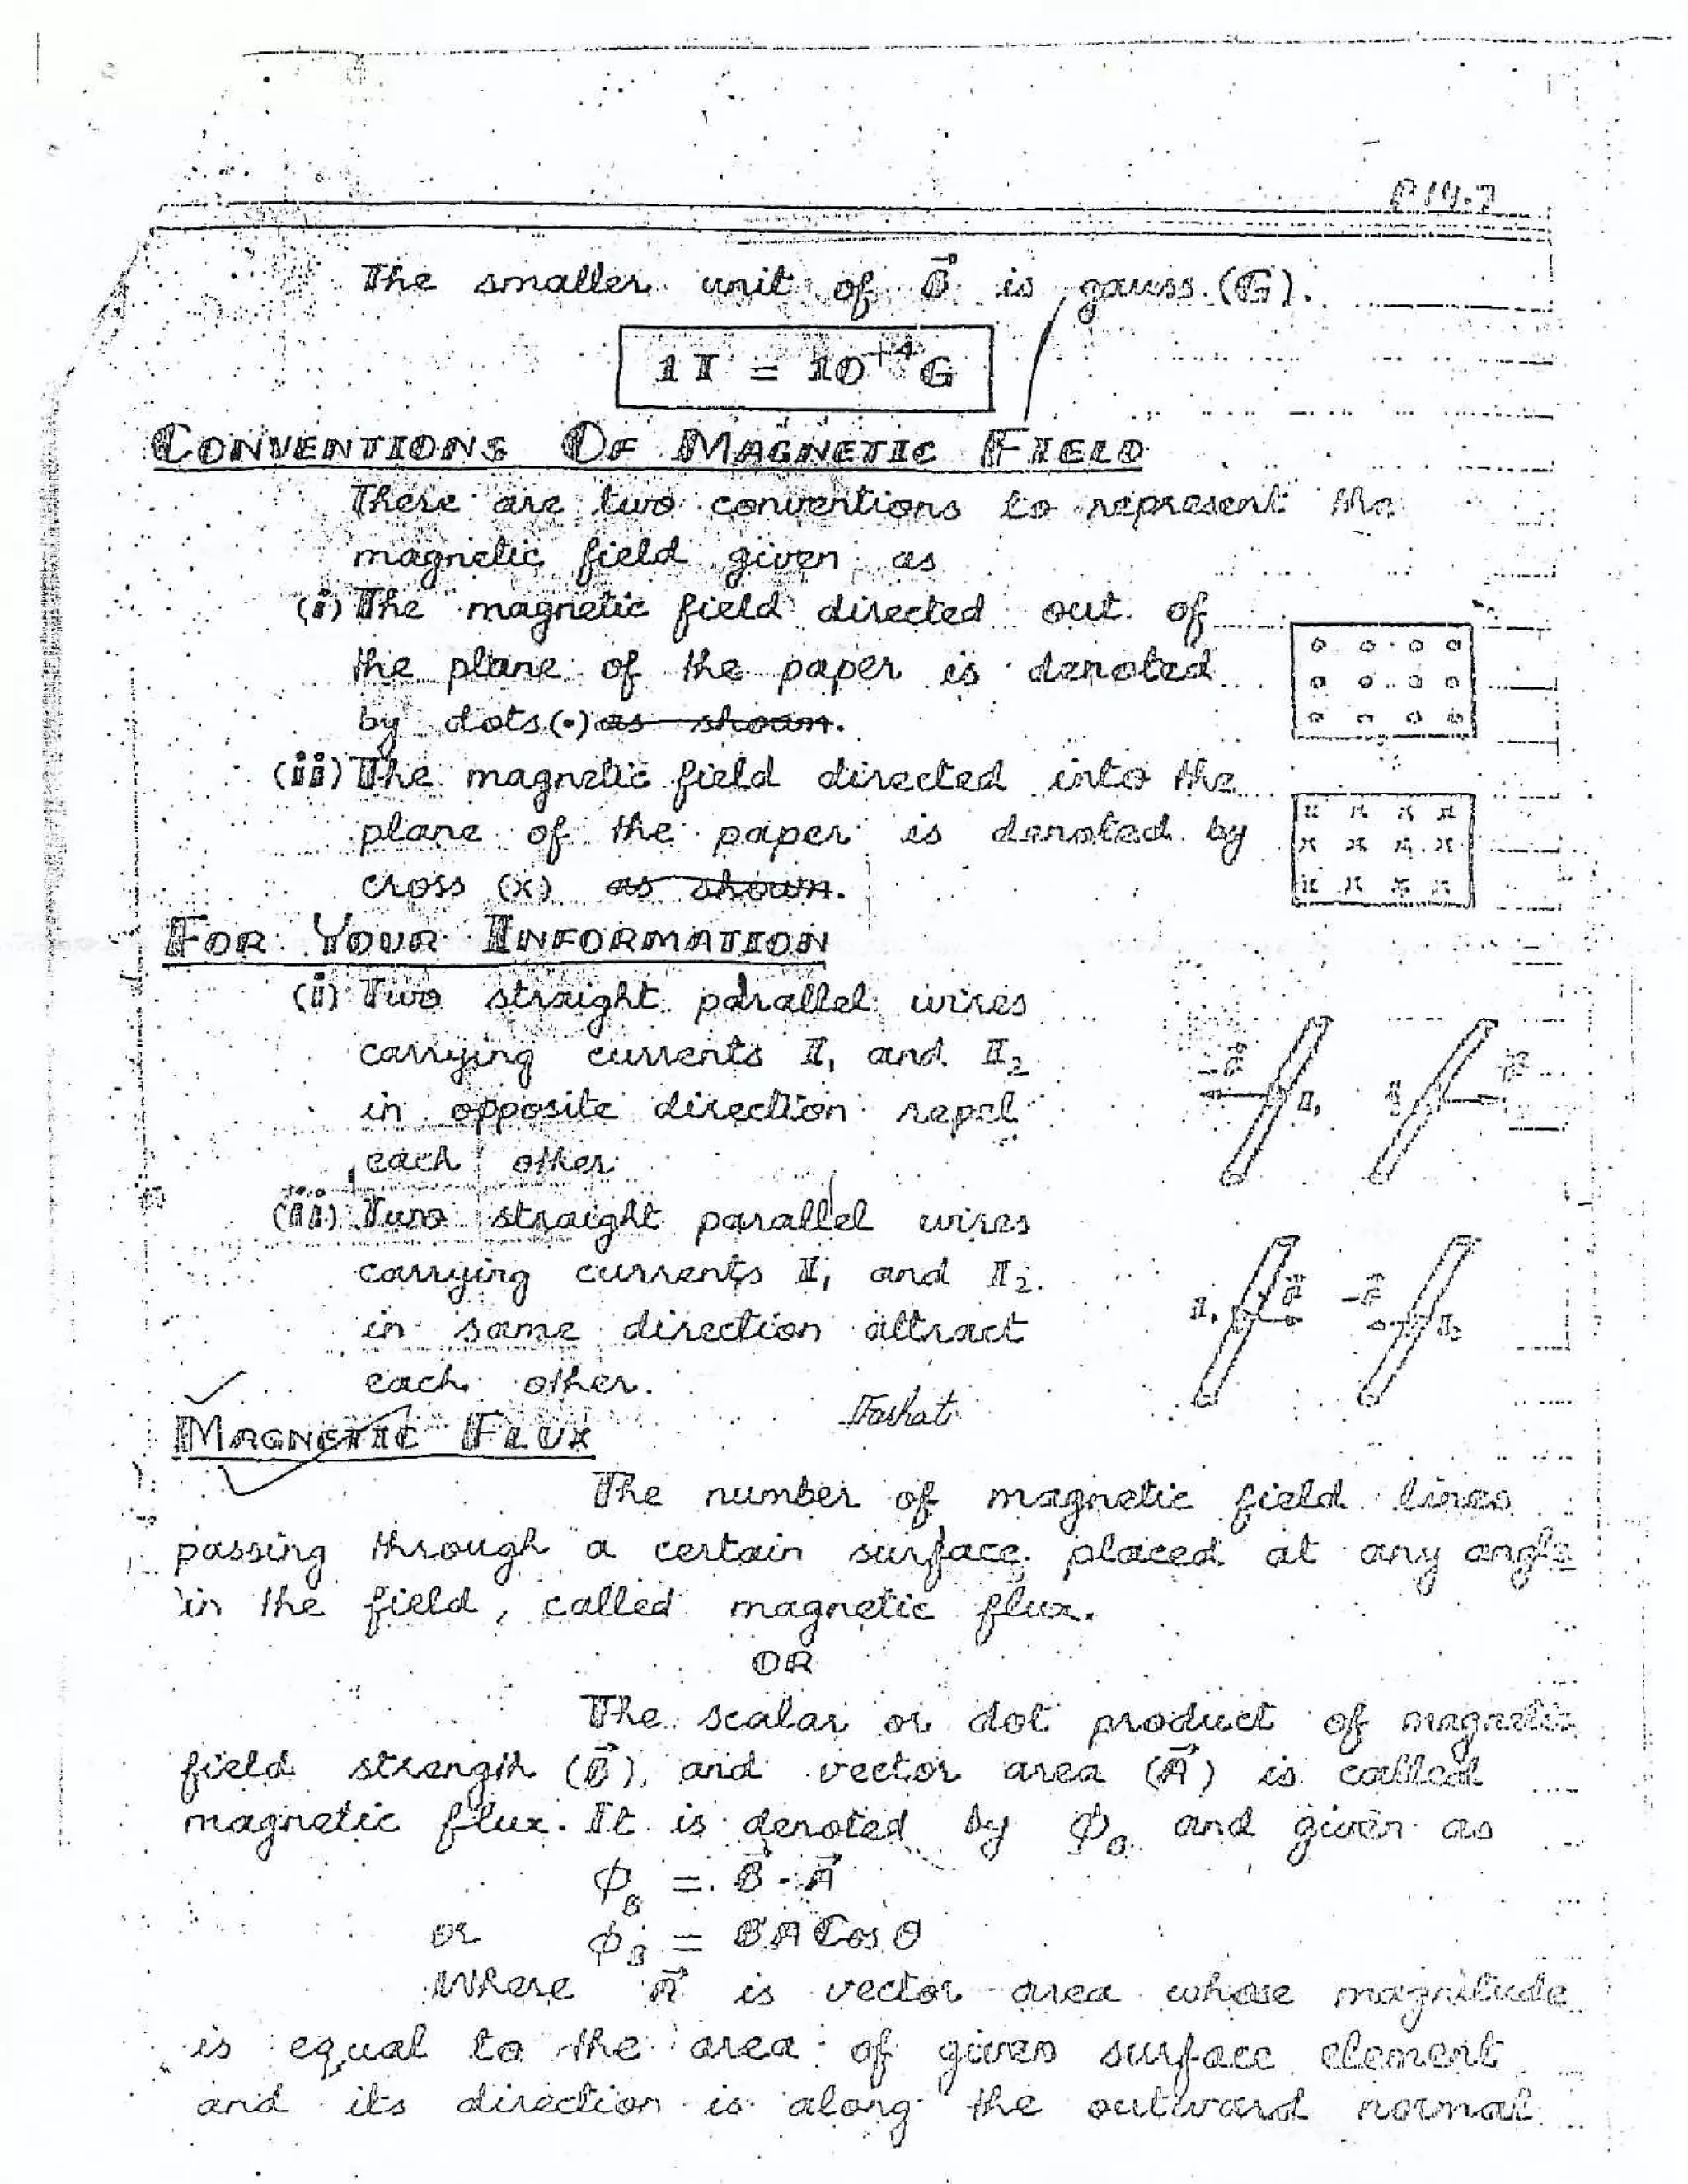 P 14.7
The smaller unit of B⃗ is gauss (G).
1 T = 10⁺⁴ G
CONVENTIONS OF MAGNETIC FIELD
There are two conventions to represent the
magnetic field given as
(i) The magnetic field directed out of
the plane of the paper is denoted
by dots (•) as shown.
(ii) The magnetic field directed into the
plane of the paper is denoted by
cross (x) as shown.
FOR YOUR INFORMATION
(i) Two straight parallel wires
carrying currents I₁ and I₂
in opposite direction repel
each other
(ii) Two straight parallel wires
carrying currents I₁ and I₂
in same direction attract
each other.
MAGNETIC FLUX
The number of magnetic field lines
passing through a certain surface placed at any angle
in the field, called magnetic flux.
OR
The scalar or dot product of magnetic
field strength (B⃗) and vector area (A⃗) is called
magnetic flux. It is denoted by ϕ_B and given as
ϕ_B = B⃗ · A⃗
or ϕ_B = B A Cos θ
Where A⃗ is vector area whose magnitude
is equal to the area of given surface element
and its direction is along the outward normal